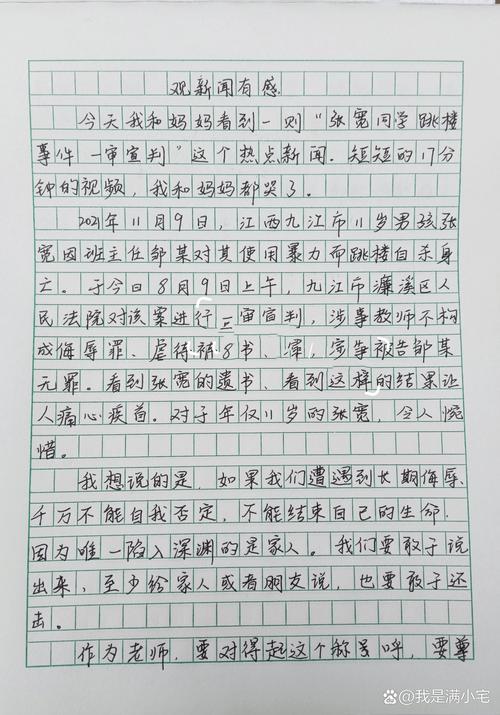 观新闻有感
今天我和妈妈看到一则“张宽同学跳楼
事件一审宣判”这个热点新闻.短短的17分
钟的视频，我和妈妈都哭了。
2021年11月9日，江西九江市11岁男孩张
宽因班主任邹某对其使用暴力而跳楼自杀身
亡。于今日8月9日上午，九江市濂溪区人
民法院对该案进行一审宣判，涉事教师不构
成侮辱罪、虐待被 书、罪，涉事被告邹某
无罪。看到张宽的遗书、看到这样的结果让
人痛心疾首。对于年仅11岁的张宽，令人惋
惜。
我想说的是，如果我们遭遇到长期侮辱、
千万不能自我否定，不能结束自己的生命.
因为唯一陷入深渊的是家人。我们要敢于说
出来，至少给家人或者朋友说，也要敢于还
击。
作为老师，要对得起这个称号呼，要尊
头条@我是满小宅